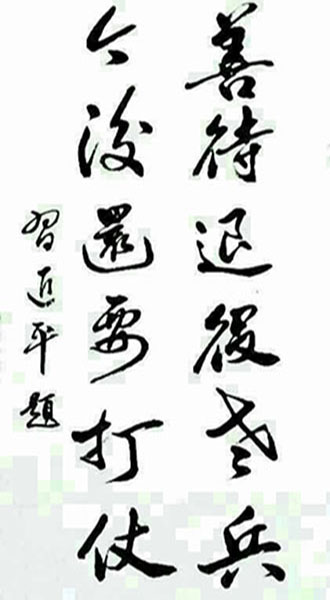 善待退役老兵
今後還要打仗
習近平題